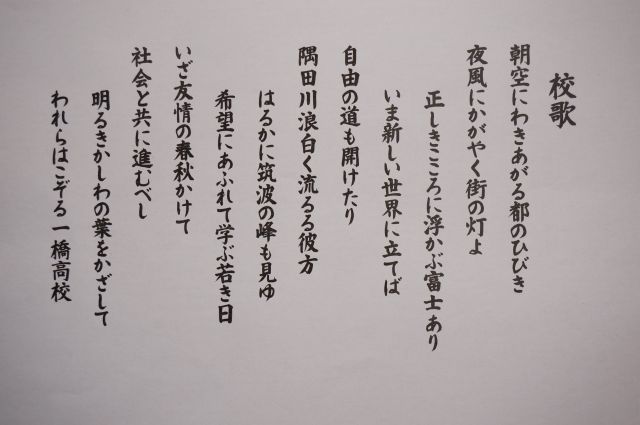 校歌
朝空にわきあがる都のひびき
夜風にかがやく街の灯よ
正しきこころに浮かぶ富士あり
いま新しい世界に立てば
自由の道も開けたり
隅田川浪白く流るる彼方
はるかに筑波の峰も見ゆ
希望にあふれて学ぶ若き日
いざ友情の春秋かけて
社会と共に進むべし
明るきかしわの葉をかざして
われらはこぞる一橋高校